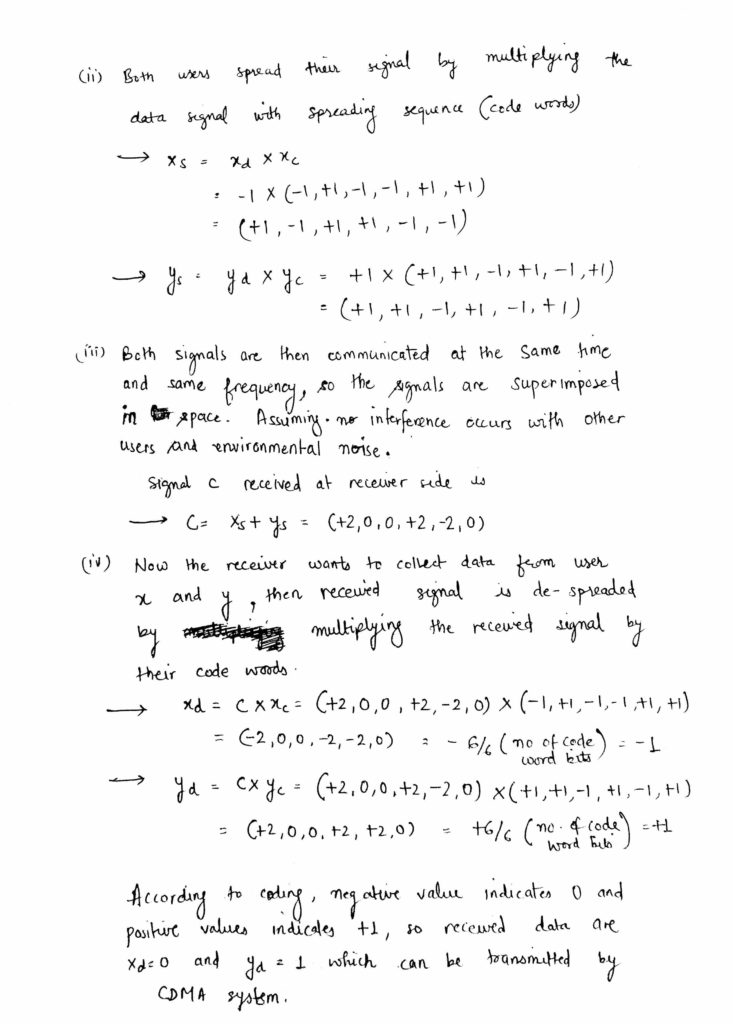 (ii) Both users spread their signal by multiplying the
data signal with spreading sequence (code words)
→ xs = xd × xc
= -1 × (-1, +1, -1, -1, +1, +1)
= (+1, -1, +1, +1, -1, -1)
→ ys = yd × yc = +1 × (+1, +1, -1, +1, -1, +1)
= (+1, +1, -1, +1, -1, +1)
(iii) Both signals are then communicated at the same time
and same frequency, so the signals are superimposed
in space. Assuming no interference occurs with other
users and environmental noise.
Signal c received at receiver side is
→ C = xs + ys = (+2, 0, 0, +2, -2, 0)
(iv) Now the receiver wants to collect data from user
x and y, then received signal is de-spreaded
by multiplying the received signal by
their code words.
→ xd = C × xc = (+2, 0, 0, +2, -2, 0) × (-1, +1, -1, -1, +1, +1)
= (-2, 0, 0, -2, -2, 0) = -6/6 (no of code word bits) = -1
→ yd = C × yc = (+2, 0, 0, +2, -2, 0) × (+1, +1, -1, +1, -1, +1)
= (+2, 0, 0, +2, +2, 0) = +6/6 (no. of code word bits) = +1
According to coding, negative value indicates 0 and
positive values indicates +1, so received data are
xd = 0 and yd = 1 which can be transmitted by
CDMA system.